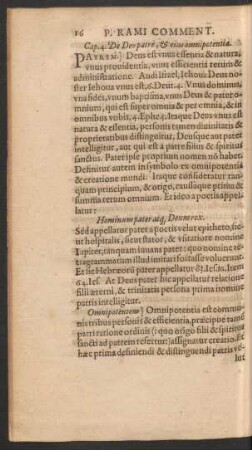 16 P. RAMI COMMENT.
Cap. 4. De Deo patre, & eius omnipotentia.
PATREM] Deus est vnus essentia & natura,
vnus prouidentia, vnus efficientis rerum &
administratione. Audi Israel, Iehoua Deus no-
ster Iehoua vnus est, 6. Deut. 4. Vnus dominus,
vna fides, vnum baptisma, vnus Deus & pater o-
mnium, qui est super omnia & per omnia, & in
omnibus vobis, 4. Ephe. 4. Itaque Deus vnus est
natura & essentia, personis etiam &
proprietatibus distinguitur, Deusque aut pater
intelligitur, aut qui est a patre filius & spiritus
sanctus. Pater ipse proprium nomen nō habet.
Definitur autem in symbolo ex omnipotentia
& creatione mundi. Itaque consideratur tan-
quam principium, & origo, caussaque prima &
summa rerum omnium. Et ideo a poetis appel-
latur:
Hominum pater atq; Deum rex.
Sed appellatur pater a poetis velut epitheto, sic-
ut hospitalis, sicut stator, & vsitatiore nomine
Iupiter, tanquam iuuans pater: quo nomine te-
tragrammaton illud imitari fortasse voluerunt.
Et sic Hebræorū pater appellatur 63. Ies. 16. Item
64. Ies. At Deus pater hic appellatur relatione
filii æterni, & trinitatis persona prima nomine
patris intelligitur.
Omnipotentem] Omnipotentia est commu-
nis tribus personis & efficientia, præcipue tamē
patri ratione ordinis (quo origo filii & spiritus
sancti ad patrem refertur) assignatur creatio. Et
hæc prima definiendi & distinguendi patris ve-
lut